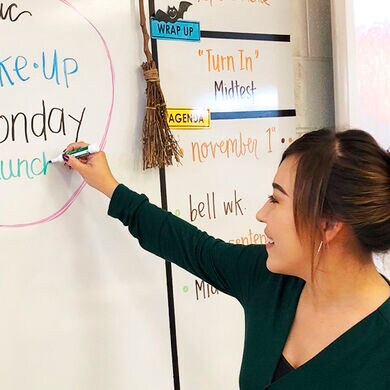 ke-up
onday
unch
WRAP UP
"Turn In"
Midtest
AGENDA
november 1st
bell wk.